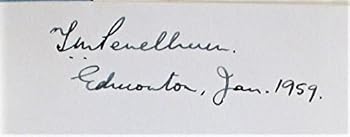 T.M. Penelhum.
Edmonton, Jan. 1959.